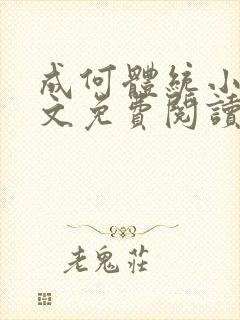 成何體統小
文免費閱讀
老鬼莊